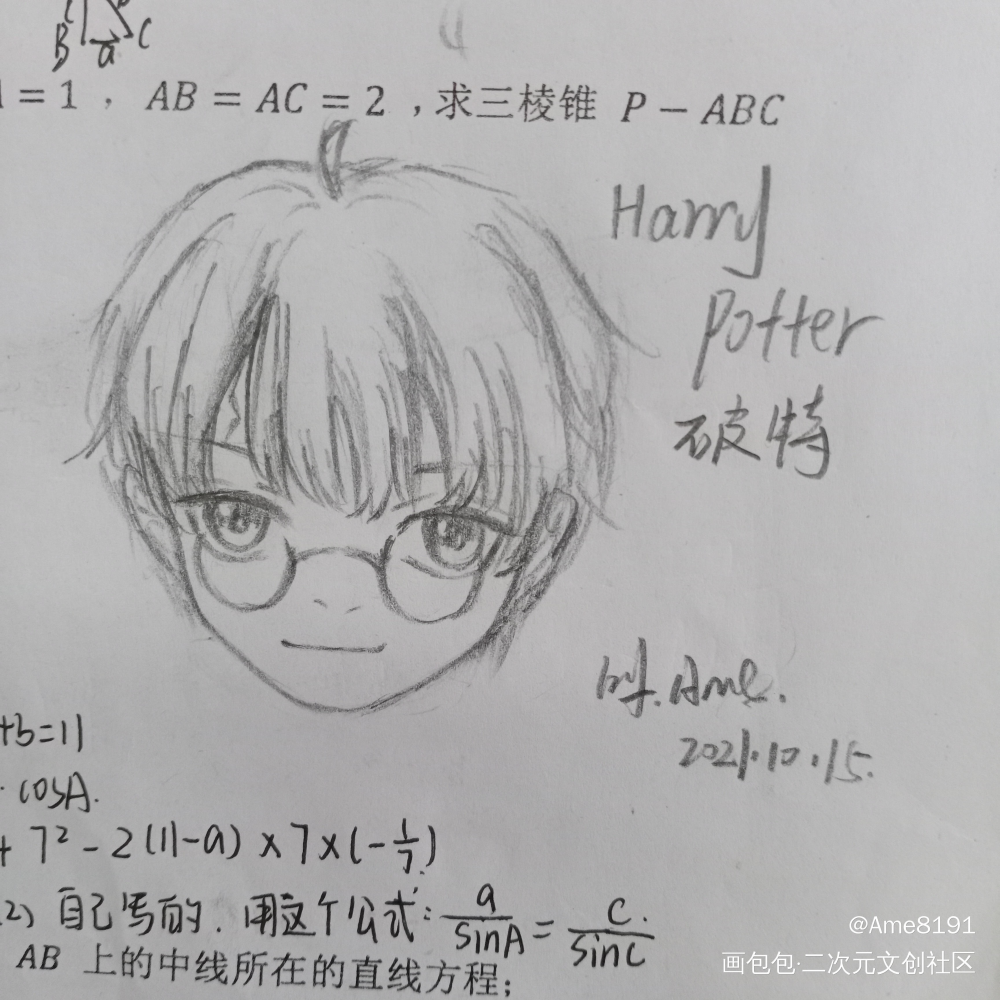 B a C
= 1 , AB = AC = 2 ,求三棱锥 P − ABC
Harry
Potter
破特
Ame.
2021.10.15.
+b=11
· cosA.
+ 7² - 2(11-a) × 7 × (-1/7)
2) 自己写的. 用这个公式: a/sinA = c/sinC
AB 上的中线所在的直线方程;
@Ame8191
画包包·二次元文创社区